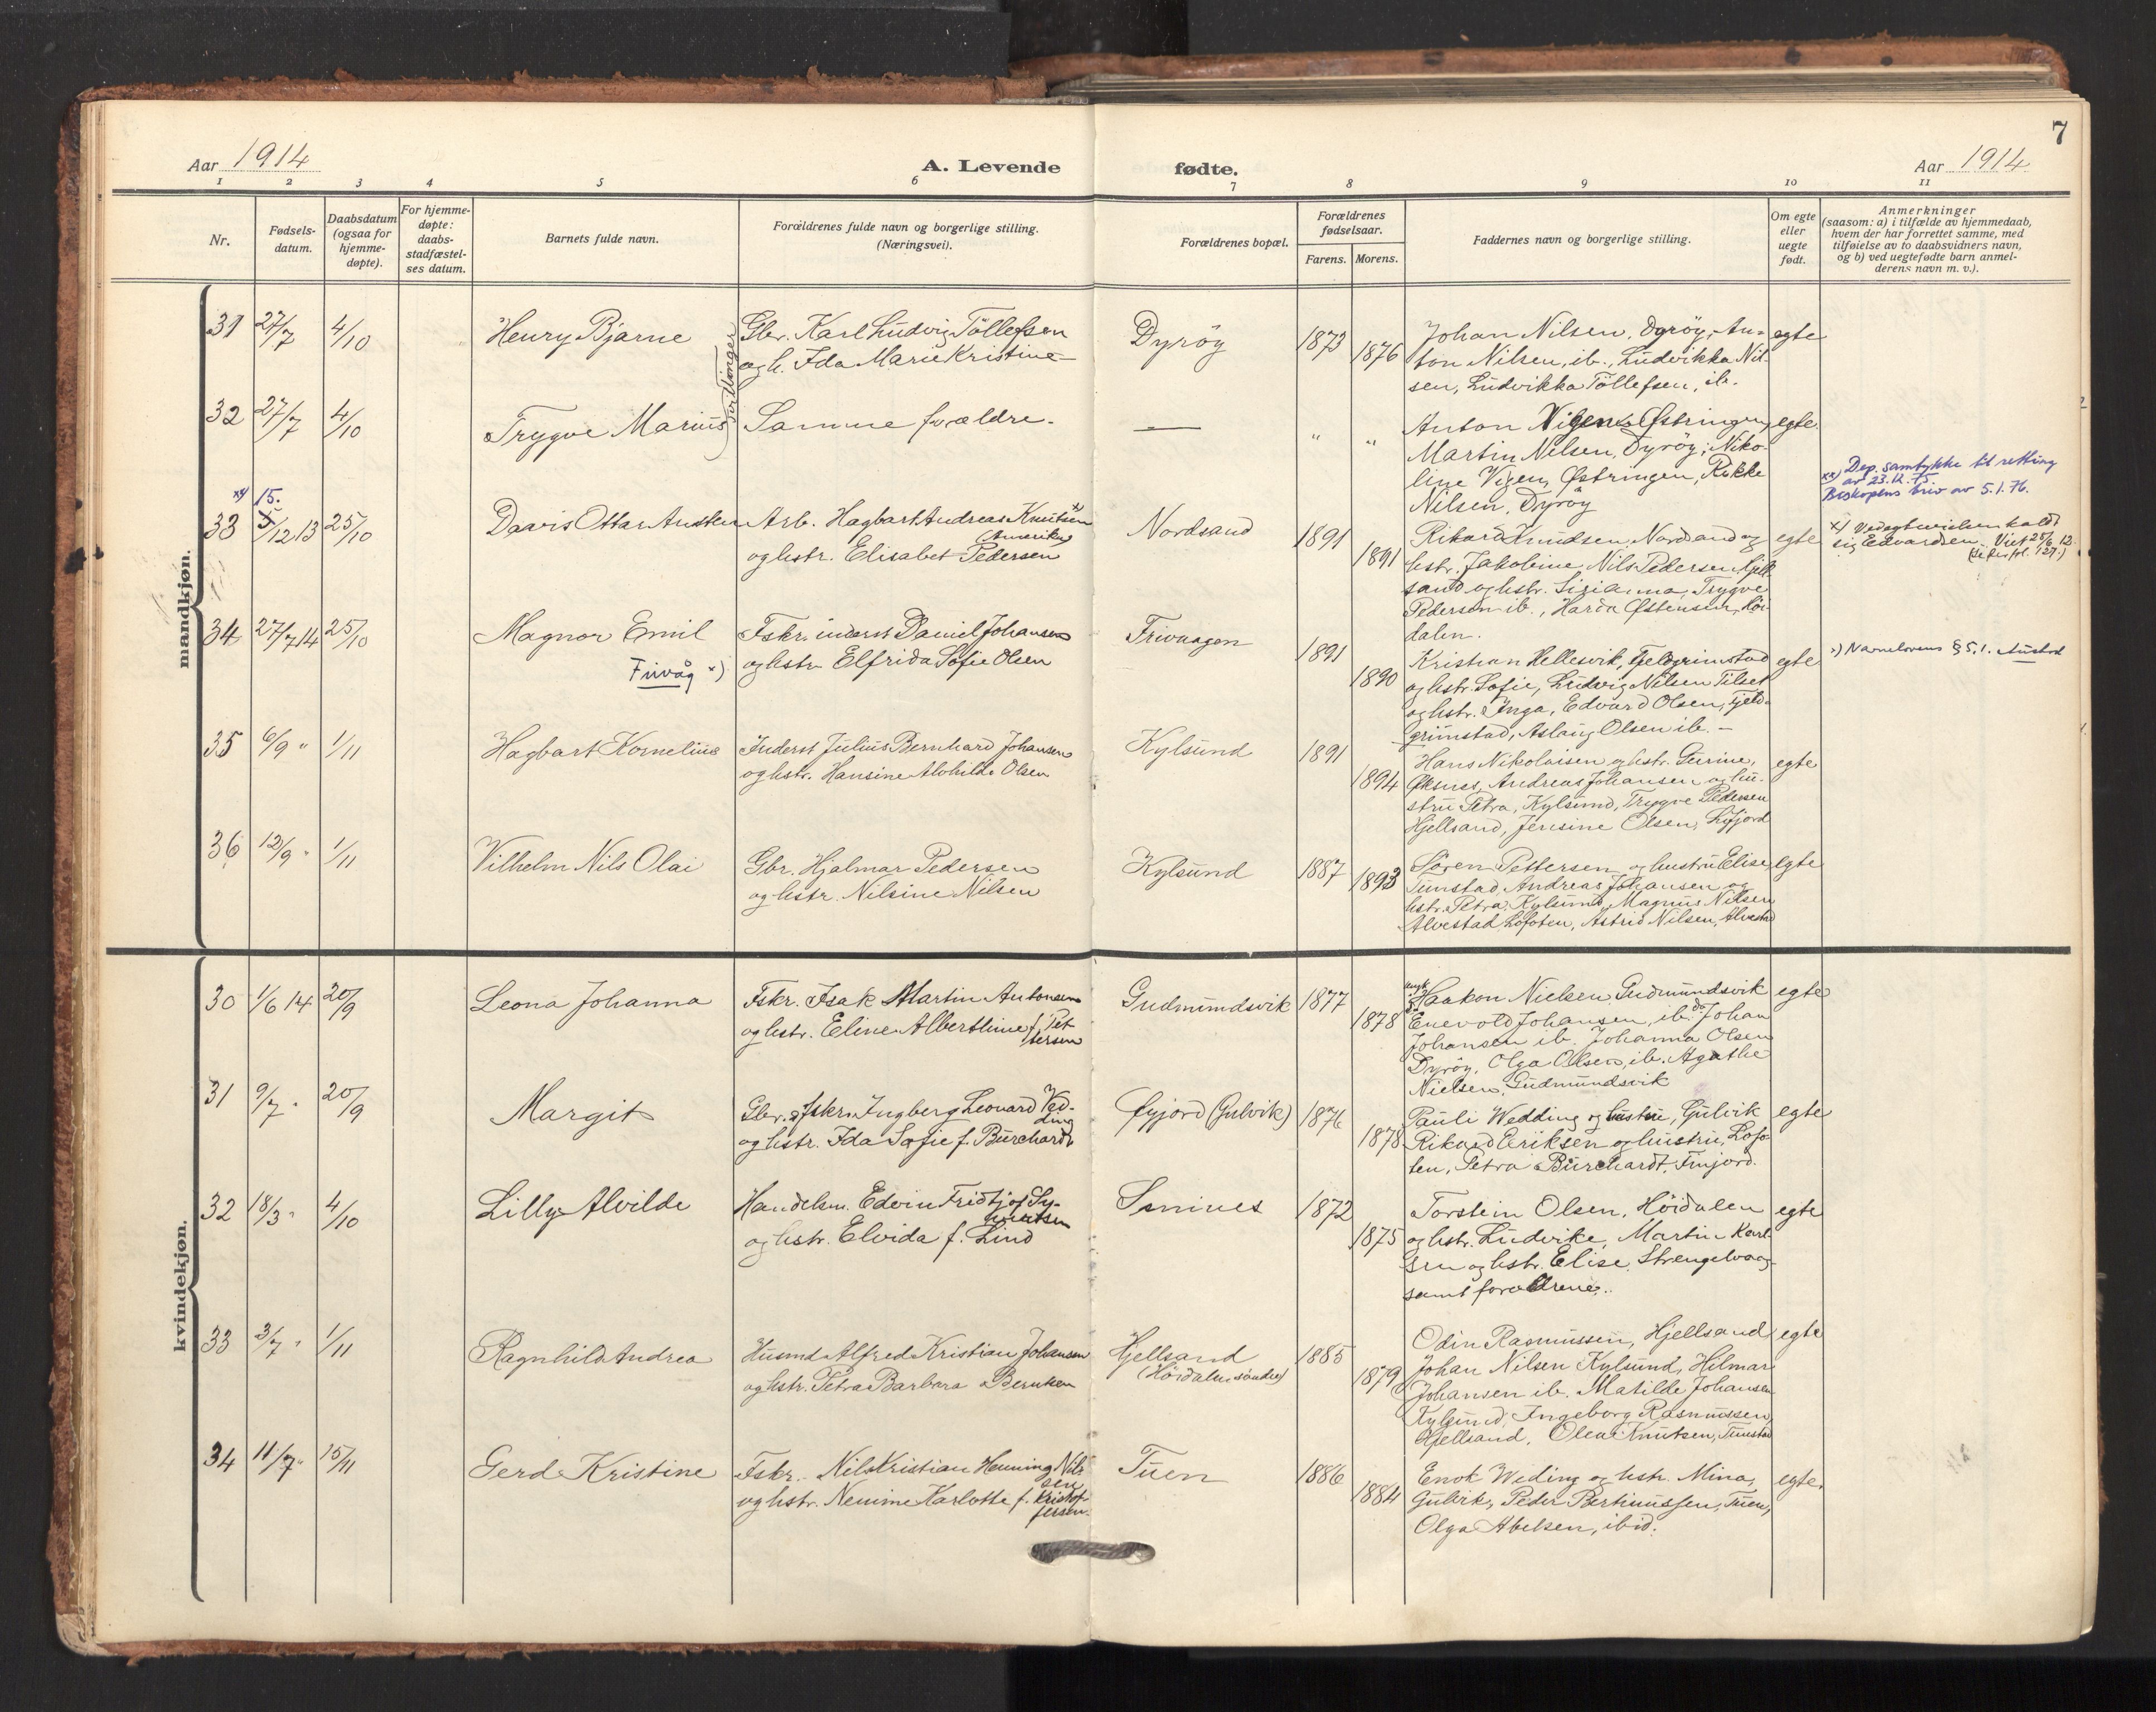 7
Aar 1914
A. Levende
fødte.
Aar 1914
1 2 3 4 5 6 7 8 9 10 11
Nr.
Fødsels-
datum.
Daabsdatum
(ogsaa for
hjemme-
døpte).
For hjemme-
døpte:
daabs-
stadfæstel-
ses datum.
Barnets fulde navn.
Forældrenes fulde navn og borgerlige stilling.
(Næringsvei).
Forældrenes bopæl.
Forældrenes
fødselsaar.
Farens. Morens.
Faddernes navn og borgerlige stilling.
Om egte
eller
uegte
født.
Anmerkninger
(saasom: a) i tilfælde av hjemmedaab,
hvem der har forrettet samme, med
tilføielse av to daabsvidners navn,
og b) ved uegtefødte barn anmel-
derens navn m. v.).
mandkjøn.
31 27/7 4/10 Henry Bjarne
tvillinger
Gbr. Karl Ludvig Töllefsen
og h. Ida Marie Kristine
Dyröy 1873 1876
Johan Nilsen, Dyröy, An-
ton Nilsen, ib., Ludvikka Nil-
sen, Ludvikka Töllefsen, ib.
egte
32 27/7 4/10 Trygve Marius
Samme forældre.
— " "
Anton Vigen, Østringen,
Martin Nilsen, Dyröy; Niko-
line Vigen, Østringen, Rikke
Nilsen, Dyröy
egte.
xx) Dep. samtykke til retting
av 23.12.75
Biskopens briv av 5.1.76.
xx) 15.
33 5/12 13 25/10 Davis Ottar Austen
Arb. Hagbart Andreas Knutsen x)
(Amerika)
og hstr. Elisabet Pedersen
Nordsand 1891 1891
Rikard Knudsen, Nordsand og
hstr. Jakobine, Nils Pedersen, Hjell-
sand og hstr. Sigianna, Trygve
Pedersen ib., Harda Østensen, Höi-
dalen.
egte
x) Ved egtevielsen kaldt
sig Edvardsen. Viet 25/6 12.
34 27/7 14 25/10 Magnor Emil
Frivåg x)
Fskr. inderst Daniel Johansen
og hstr. Elfrida Sofie Olsen
Frivaagen 1891 1890
Kristian Hellesvik, Fjeldgrimstad
og hstr. Sofie, Ludvig Nilsen Tilset
og hstr. Inga, Edvard Olsen, Fjeld-
grimstad, Aslaug Olsen ib. –
egte
x) Navnelovens § 5, 1.
35 6/9 " 1/11 Hagbart Kornelius
Inderst Julius Bernhard Johansen
og hstr. Hansine Alvhilde Olsen
Kylsund 1891 1894
Hans Nikolaisen og hstr. Gurine,
Øksnes, Andreas Johansen og hu-
stru Petra, Kylsund, Trygve Pedersen
Hjellsand, Jensine Olsen, Lifjord
egte
36 12/9 " 1/11 Vilhelm Nils Olai
Gbr. Hjalmar Pedersen
og hstr. Nilsine Nilsen
Kylsund 1887 1893
Søren Pettersen og hustru Elise,
Tunstad, Andreas Johansen og
hstr. Petra, Kylsund, Magnus Nilsen
Alvestad Lofoten, Astrid Nilsen, Alvestad
egte
kvindekjøn.
30 1/6 14 20/9 Leona Johanna
Fskr. Isak Martin Antonsen
og hstr. Eline Albertline f. Pet-
tersen
Gudmundsvik 1877 1878
Haakon Nielsen Gudmundsvik
Enevold Johansen, ib. do. Johan
Johansen ib. Johanna Olsen
Dyröy, Olga Olsen, ib. Agathe
Nielsen, Gudmundsvik
egte
31 9/7 " 20/9 Margit
Gbr. & fskr. Ingberg Leonard Wed-
ding
og hstr. Ida Sofie f. Burchardt
Øyjord (Gulvik) 1876 1878
Pauli Wedding og hustru, Gulvik
Rikard Eriksen og hustru, Lofo-
ten, Petra Burchardt, Finjord.
egte
32 18/3 " 4/10 Lilly Alvilde
Handelsm. Edvin Fridtjof Sy-
vertsen
og hstr. Elvida f. Lind
Smines 1872 1875
Torstein Olsen, Höidalen
og hstr. Ludvike, Martin Karl-
sen og hstr. Elise, Strengelvaag
samt forældrene.
egte
33 3/7 " 1/11 Ragnhild Andrea
Husmd. Alfred Kristian Johansen
og hstr. Petra Barbara Berntsen
Hjellsand
(Höidalen söndre)
1885 1879
Odin Rasmussen, Hjellsand,
Johan Nilsen Kylsund, Hilmar
Johansen ib. Matilde Johansen
Kylsund, Ingeborg Rasmussen,
Hjellsand, Olea Knutsen, Tunstad
egte
34 11/7 " 15/11 Gerd Kristine
Fskr. Nils Kristian Henning Nil-
sen
og hstr. Nennine Karlotte f. Kristof-
fersen.
Tuen 1886 1884
Enok Weding og hstr. Mina,
Gulvik, Peder Bertinussen, Tuen,
Olga Abelsen, ibid.
egte.